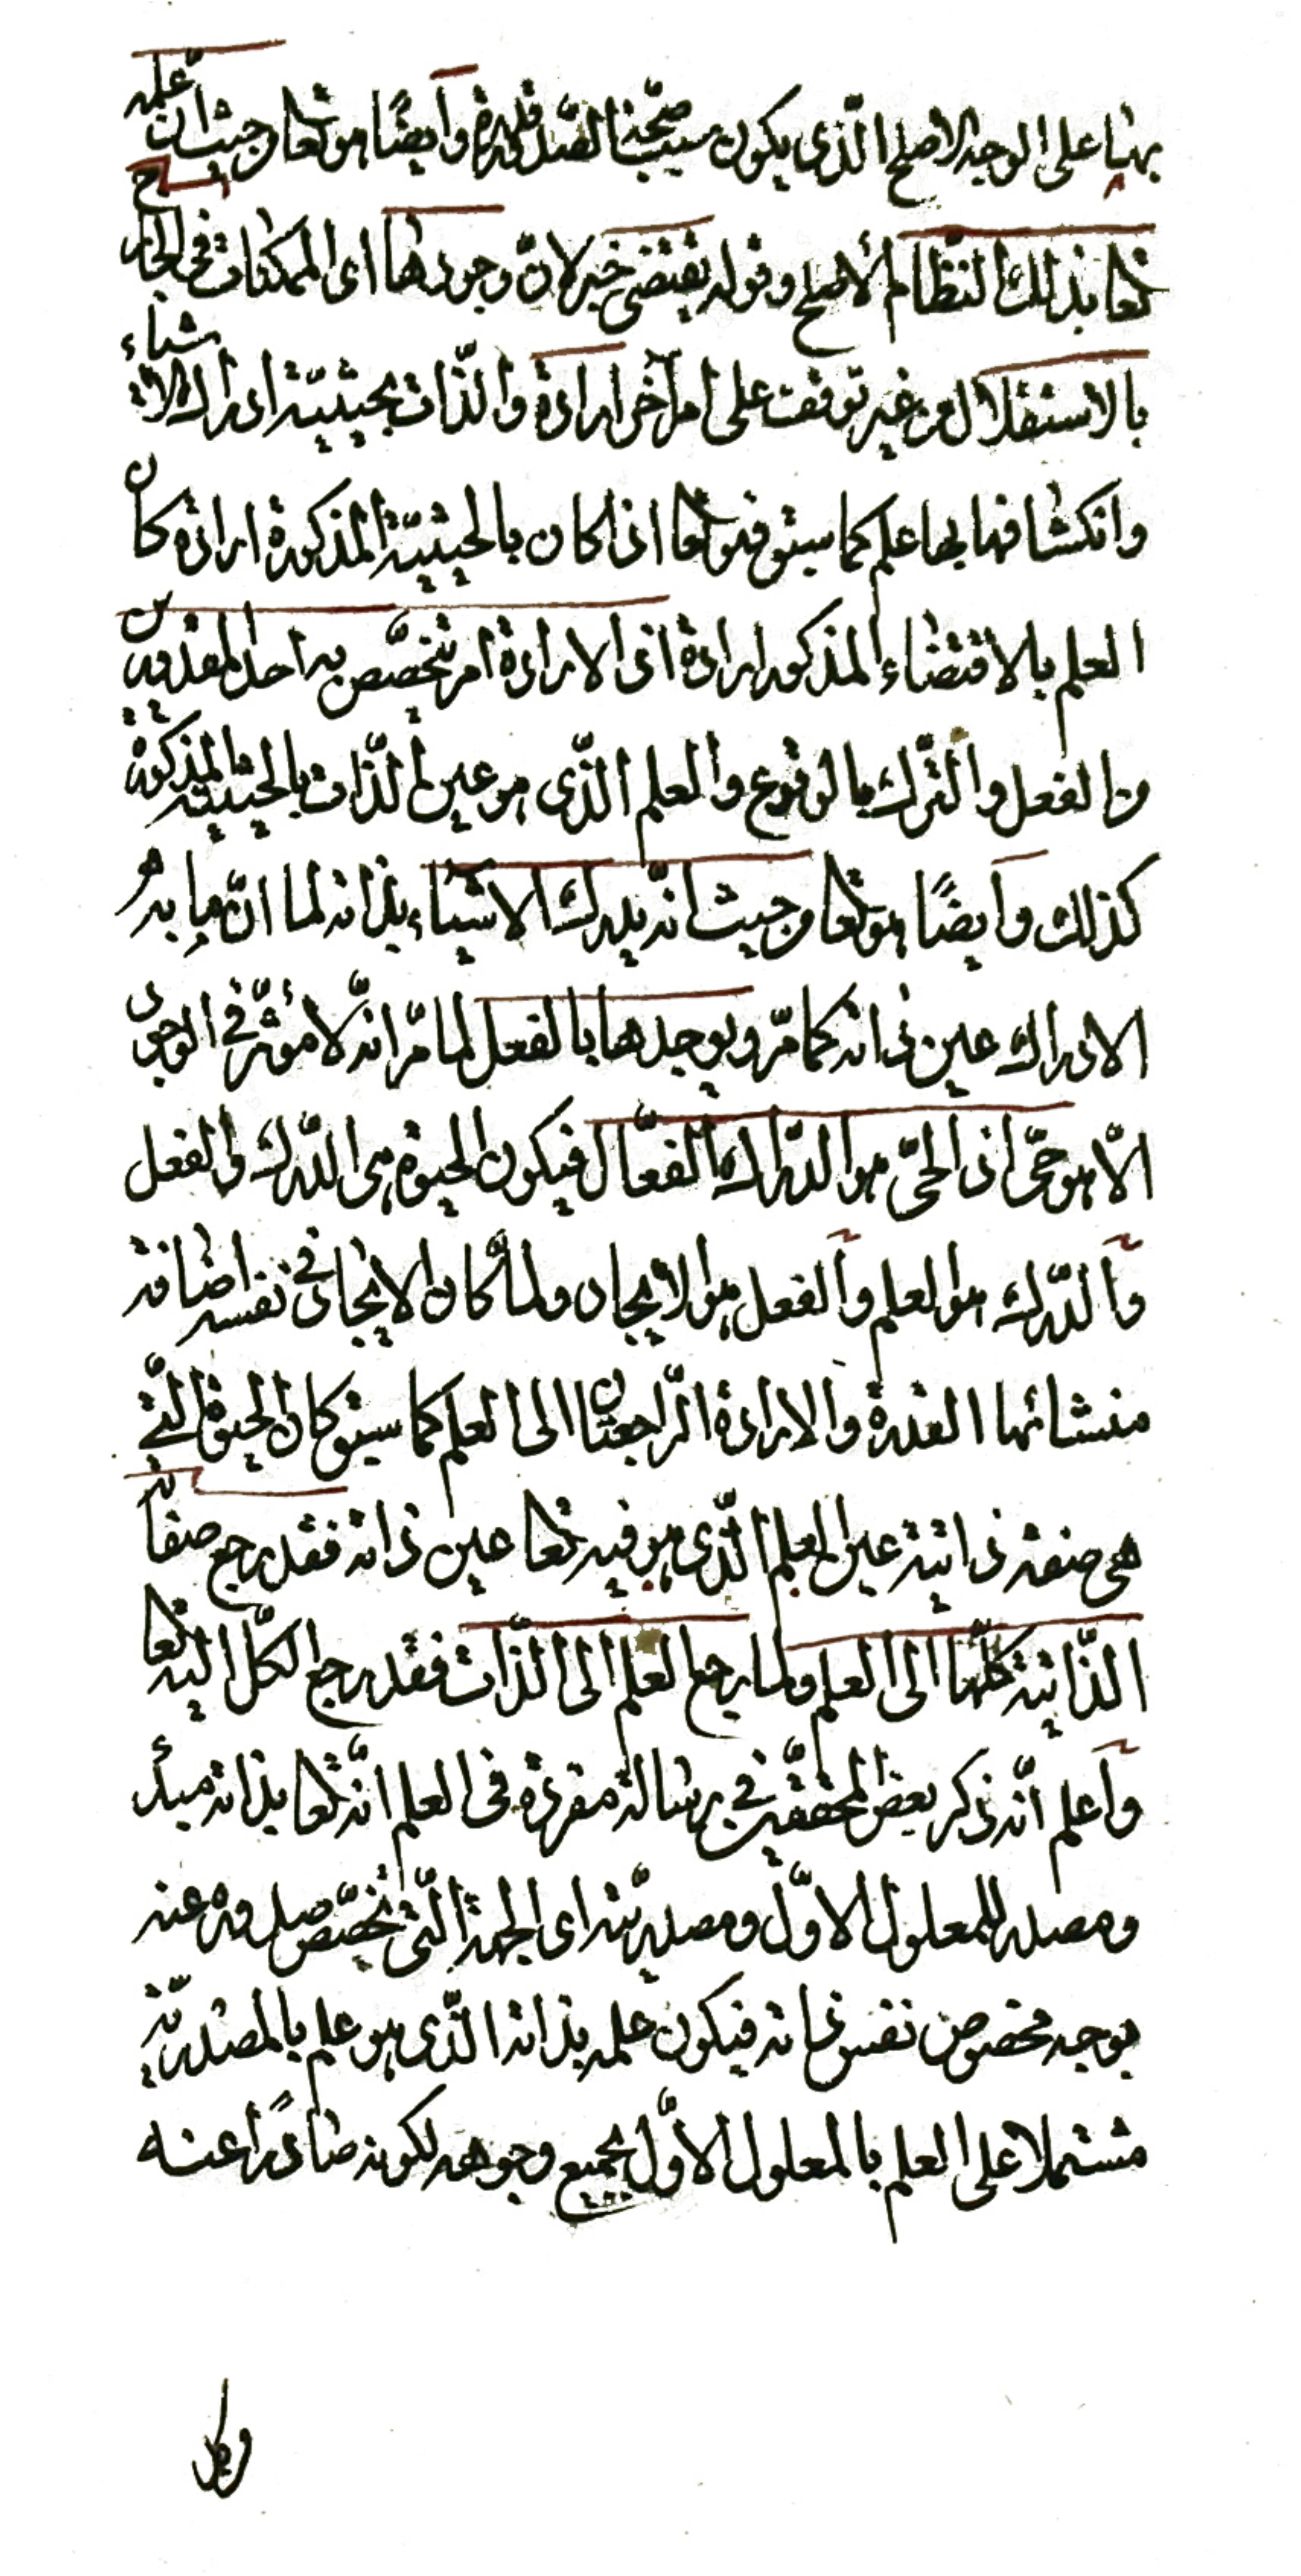 بهنّا على الوجه الاصلح الّذى يكون سبب صحّة الصّدور قدرة وايضًا هو تعا من حيث ان علمه
تعا بذلك النظام الأصلح وقوله يقتضى خبر لانّ وجودها اى الممكنات فى الخارج
بالاستقلال من غير توقف على امر آخر ارادة والذّات بحيثيّة ادراك الاشياء
وانكشافها بها علم كما سبق فهو تعا اذا كان بالحيثيّة المذكورة ارادة كان
العلم بالاقتضاء المذكور ارادة اذ الارادة امر تخصّص به احد المقدورين
من الفعل والترك بالوقوع والعلم الذّى هو عين الذّات بالحيثيّة المذكورة
كذلك وايضًا هو تعا من حيث انه يدرك الاشياء بذاته لما انّ ما به
الادراك عين ذاته كما مرّ ويوجدها بالفعل لما مرّ انّه لا مؤثّر فى الوجود
الّا هو حىّ اذ الحىّ هو الدّراك الفعّال فيكون الحيوة هى الدّرك والفعل
والدّرك هو العلم والفعل هو الايجاد ولمّا كان الايجاد فى نفسه اضافة
منشائها القدرة والارادة الرّاجعتان الى العلم كما سبق كان الحيوة الّتى
هى صفة ذاتية عين العلم الّذى هو فيه تعا عين ذاته فقد رجع صفاته
الذّاتية كلّها الى العلم ولما رجع العلم الى الذّات فقد رجع الكلّ اليه تعا
واعلم انّه ذكر بعض المحققين فى رسالة مفردة فى العلم انّه تعا بذاته مبدأ
ومصدر للمعلول الاوّل ومصدريّته اى الجهة الّتى تخصّص صدوره عنه
بوجه مخصوص نفس ذاته فيكون علمه بذاته الذّى هو علم بالمصدريّة
مشتملا على العلم بالمعلول الاوّل بجميع وجوهه لكونه صادرًا عنه
وكل